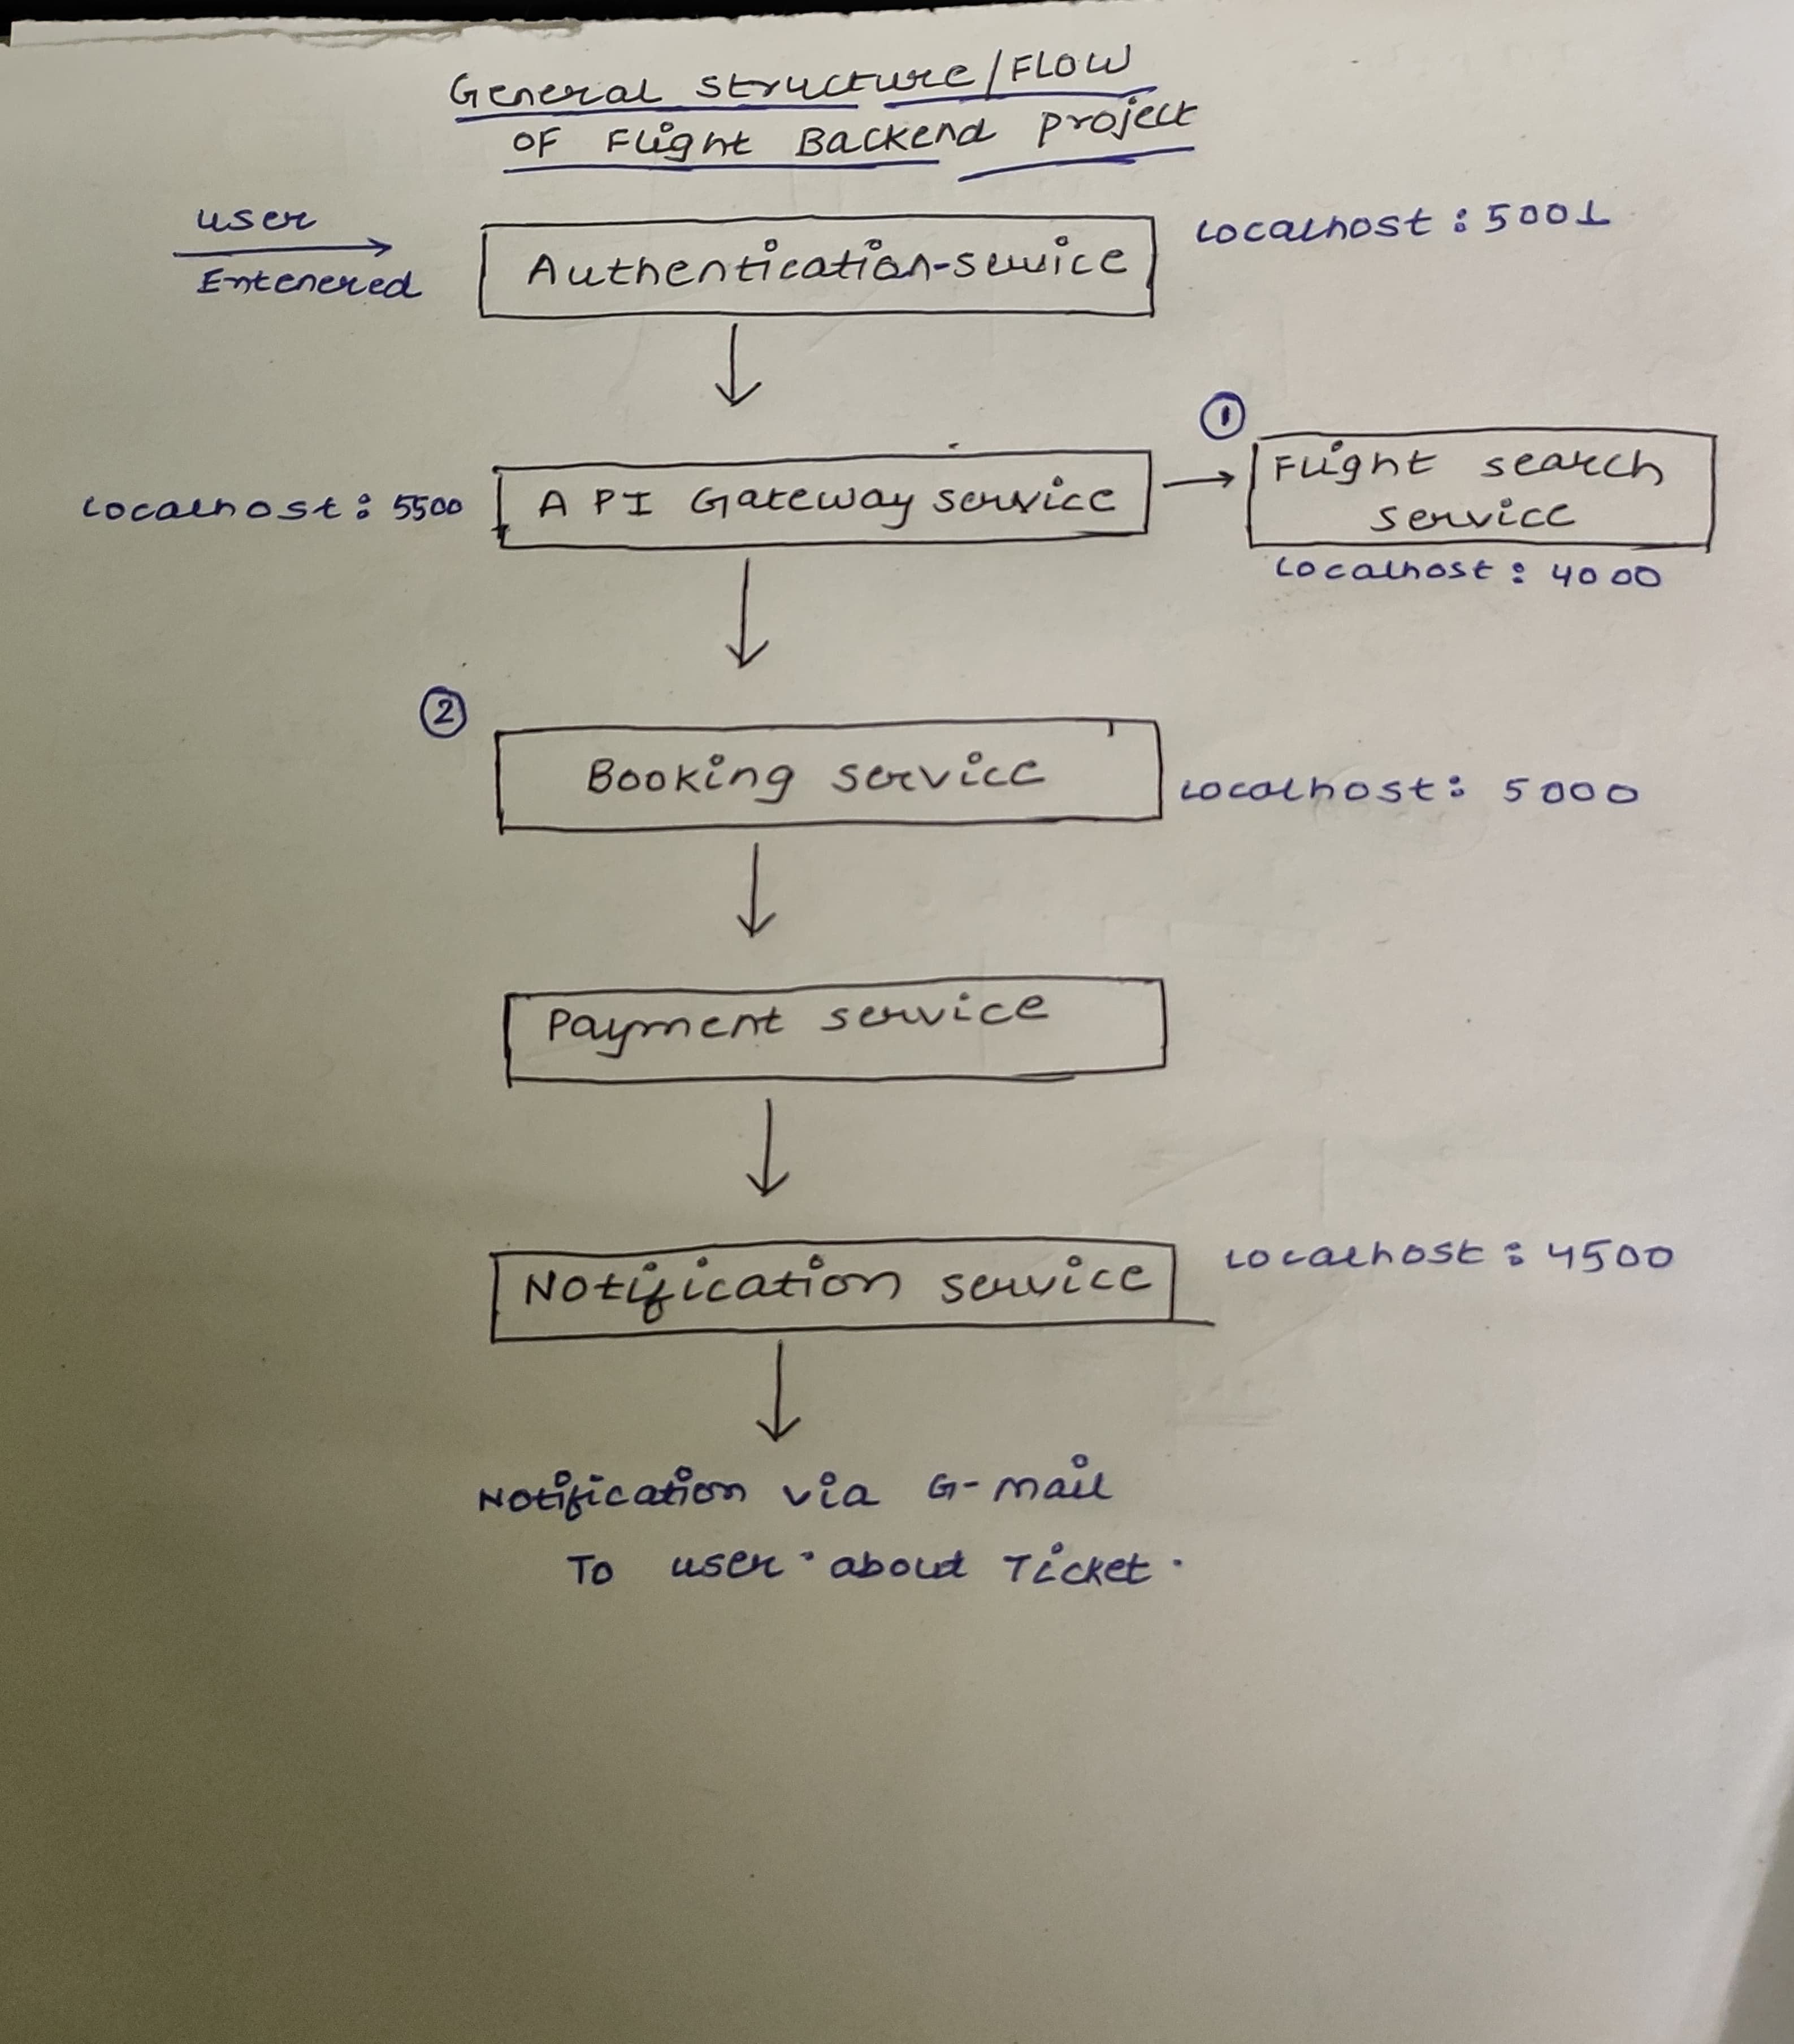 General structure/FLOW
OF Flight Backend project
user
Entenered
Authentication-service
localhost : 5001
①
localhost : 5500
API Gateway service
Flight search
service
localhost : 4000
②
Booking service
localhost : 5000
Payment service
Notification service
localhost : 4500
Notification via G-mail
To user about Ticket.